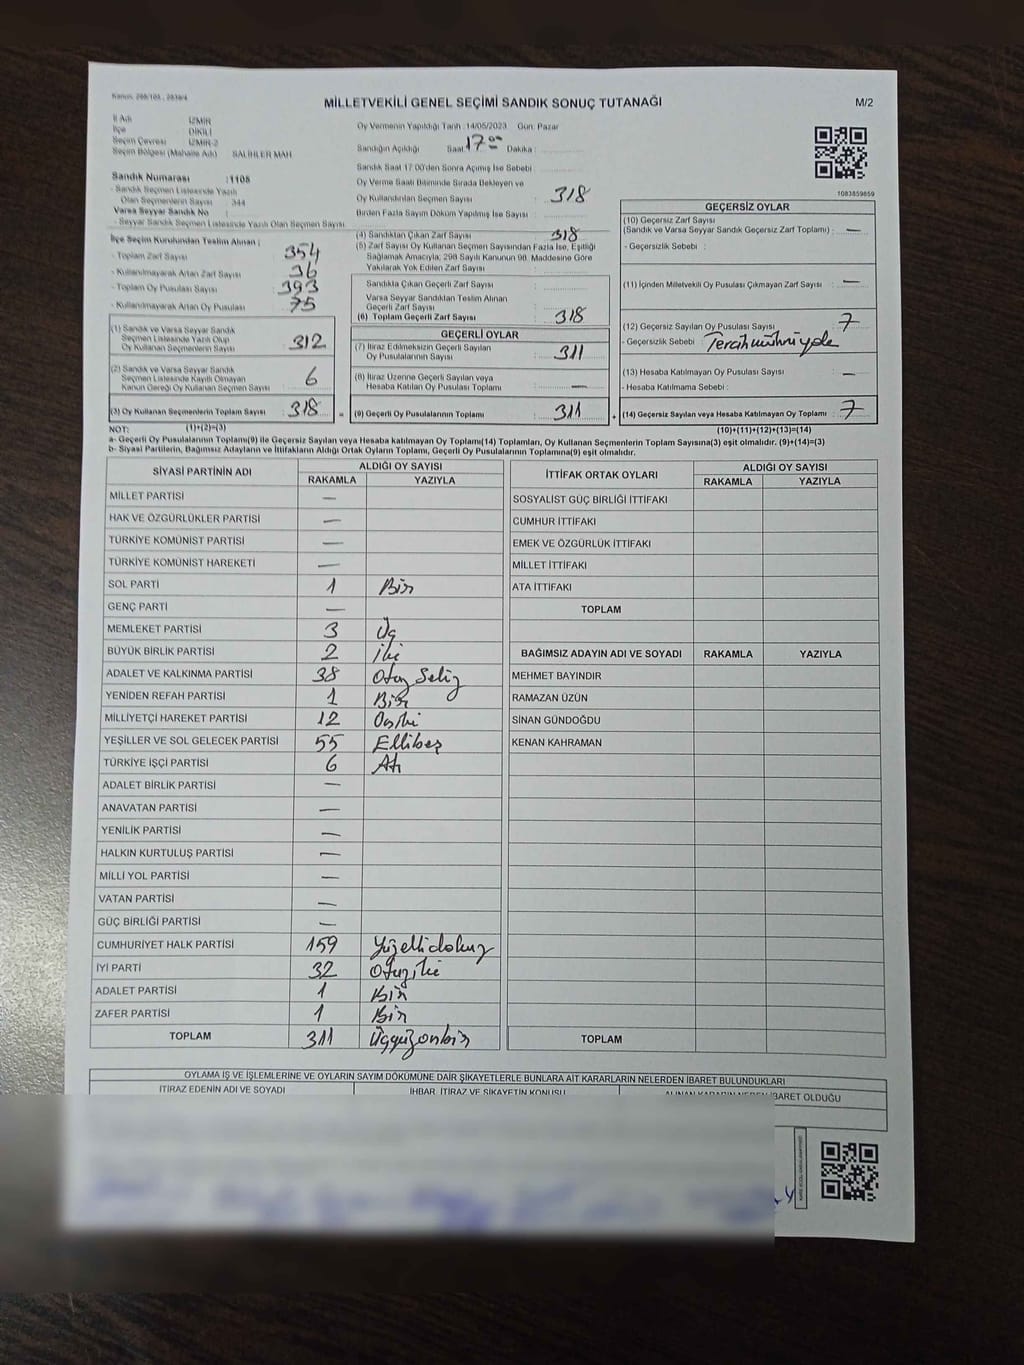 MİLLETVEKİLİ GENEL SEÇİMİ SANDIK SONUÇ TUTANAĞI
M/2
İl Adı İZMİR
İlçe DİKİLİ
Seçim Çevresi İZMİR-2
Seçim Bölgesi (Mahalle Adı) SALİHLER MAH
Sandık Numarası :1105
- Sandık Seçmen Listesinde Yazılı
Olan Seçmenlerin Sayısı : 344
Varsa Seyyar Sandık No :
- Seyyar Sandık Seçmen Listesinde Yazılı Olan Seçmen Sayısı
İlçe Seçim Kurulundan Teslim Alınan ;
- Toplam Zarf Sayısı 354
- Kullanılmayarak Artan Zarf Sayısı 36
- Toplam Oy Pusulası Sayısı 393
- Kullanılmayarak Artan Oy Pusulası 75
(1) Sandık ve Varsa Seyyar Sandık
Seçmen Listesinde Yazılı Olup
Oy Kullanan Seçmenlerin Sayısı 312
(2) Sandık ve Varsa Seyyar Sandık
Seçmen Listesinde Kayıtlı Olmayan
Kanun Gereği Oy Kullanan Seçmen Sayısı 6
(3) Oy Kullanan Seçmenlerin Toplam Sayısı 318
(1)+(2)=(3)
Oy Vermenin Yapıldığı Tarih :14/05/2023 Gün: Pazar
Sandığın Açıldığı Saat 17 00 Dakika :
Sandık Saat 17:00'den Sonra Açımış İse Sebebi
Oy Verme Saati Bitiminde Sırada Bekleyen ve
Oy Kullandırılan Seçmen Sayısı 318
Birden Fazla Sayım Döküm Yapılmış İse Sayısı :
(4) Sandıktan Çıkan Zarf Sayısı 318
(5) Zarf Sayısı Oy Kullanan Seçmen Sayısından Fazla İse, Eşitliği
Sağlamak Amacıyla, 298 Sayılı Kanunun 98. Maddesine Göre
Yakılarak Yok Edilen Zarf Sayısı
Sandıkta Çıkan Geçerli Zarf Sayısı
Varsa Seyyar Sandıkları Teslim Alınan
Geçerli Zarf Sayısı
(6) Toplam Geçerli Zarf Sayısı 318
GEÇERLİ OYLAR
(7) İtiraz Edilmeksizin Geçerli Sayılan
Oy Pusulalarının Sayısı 311
(8) İtiraz Üzerine Geçerli Sayılan veya
Hesaba Katılan Oy Pusulası Toplamı —
(9) Geçerli Oy Pusulalarının Toplamı 311
1083859859
GEÇERSİZ OYLAR
(10) Geçersiz Zarf Sayısı
(Sandık ve Varsa Seyyar Sandık Geçersiz Zarf Toplamı) : —
- Geçersizlik Sebebi :
(11) İçinden Milletvekili Oy Pusulası Çıkmayan Zarf Sayısı —
(12) Geçersiz Sayılan Oy Pusulası Sayısı 7
- Geçersizlik Sebebi :
(13) Hesaba Katılmayan Oy Pusulası Sayısı —
- Hesaba Katılmama Sebebi :
(14) Geçersiz Sayılan veya Hesaba Katılmayan Oy Toplamı 7
(10)+(11)+(12)+(13)=(14)
NOT:
a- Geçerli Oy Pusulalarının Toplamı(9) ile Geçersiz Sayılan veya Hesaba katılmayan Oy Toplamı(14) Toplamları, Oy Kullanan Seçmenlerin Toplam Sayısına(3) eşit olmalıdır. (9)+(14)=(3)
b- Siyasi Partilerin, Bağımsız Adayların ve İttifakların Aldığı Ortak Oyların Toplamı, Geçerli Oy Pusulalarının Toplamına(9) eşit olmalıdır.
SİYASİ PARTİNİN ADI ALDIĞI OY SAYISI
RAKAMLA YAZIYLA
MİLLET PARTİSİ —
HAK VE ÖZGÜRLÜKLER PARTİSİ —
TÜRKİYE KOMÜNİST PARTİSİ —
TÜRKİYE KOMÜNİST HAREKETİ —
SOL PARTİ 1 Bir
GENÇ PARTİ —
MEMLEKET PARTİSİ 3 Üç
BÜYÜK BİRLİK PARTİSİ 2 İki
ADALET VE KALKINMA PARTİSİ 38 Otuz Sekiz
YENİDEN REFAH PARTİSİ 1 Bir
MİLLİYETÇİ HAREKET PARTİSİ 12 Oniki
YEŞİLLER VE SOL GELECEK PARTİSİ 55 Ellibeş
TÜRKİYE İŞÇİ PARTİSİ 6 Altı
ADALET BİRLİK PARTİSİ —
ANAVATAN PARTİSİ —
YENİLİK PARTİSİ —
HALKIN KURTULUŞ PARTİSİ —
MİLLİ YOL PARTİSİ —
VATAN PARTİSİ —
GÜÇ BİRLİĞİ PARTİSİ —
CUMHURİYET HALK PARTİSİ 159 Yüzellidokuz
İYİ PARTİ 32 Otuziki
ADALET PARTİSİ 1 Bir
ZAFER PARTİSİ 1 Bir
TOPLAM 311 Üçyüzonbir
İTTİFAK ORTAK OYLARI ALDIĞI OY SAYISI
RAKAMLA YAZIYLA
SOSYALİST GÜÇ BİRLİĞİ İTTİFAKI
CUMHUR İTTİFAKI
EMEK VE ÖZGÜRLÜK İTTİFAKI
MİLLET İTTİFAKI
ATA İTTİFAKI
TOPLAM
BAĞIMSIZ ADAYIN ADI VE SOYADI RAKAMLA YAZIYLA
MEHMET BAYINDIR
RAMAZAN ÜZÜN
SİNAN GÜNDOĞDU
KENAN KAHRAMAN
TOPLAM
OYLAMA İŞ VE İŞLEMLERİNE VE OYLARIN SAYIM DÖKÜMÜNE DAİR ŞİKAYETLERLE BUNLARA AİT KARARLARIN NELERDEN İBARET BULUNDUKLARI
İTİRAZ EDENİN ADI VE SOYADI İHBAR, İTİRAZ VE ŞİKAYETİN KONUSU ALINAN KARARIN NEDEN İBARET OLDUĞU